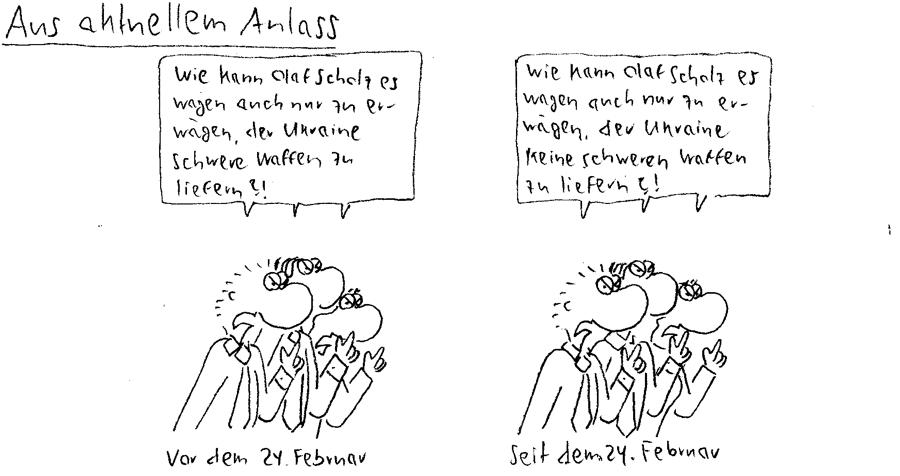 Aus aktuellem Anlass
Wie kann Olaf Scholz es
wagen auch nur zu er-
wägen, der Ukraine
schwere Waffen zu
liefern?!
Wie kann Olaf Scholz es
wagen auch nur zu er-
wägen, der Ukraine
keine schweren Waffen
zu liefern?!
Vor dem 24. Februar
Seit dem 24. Februar